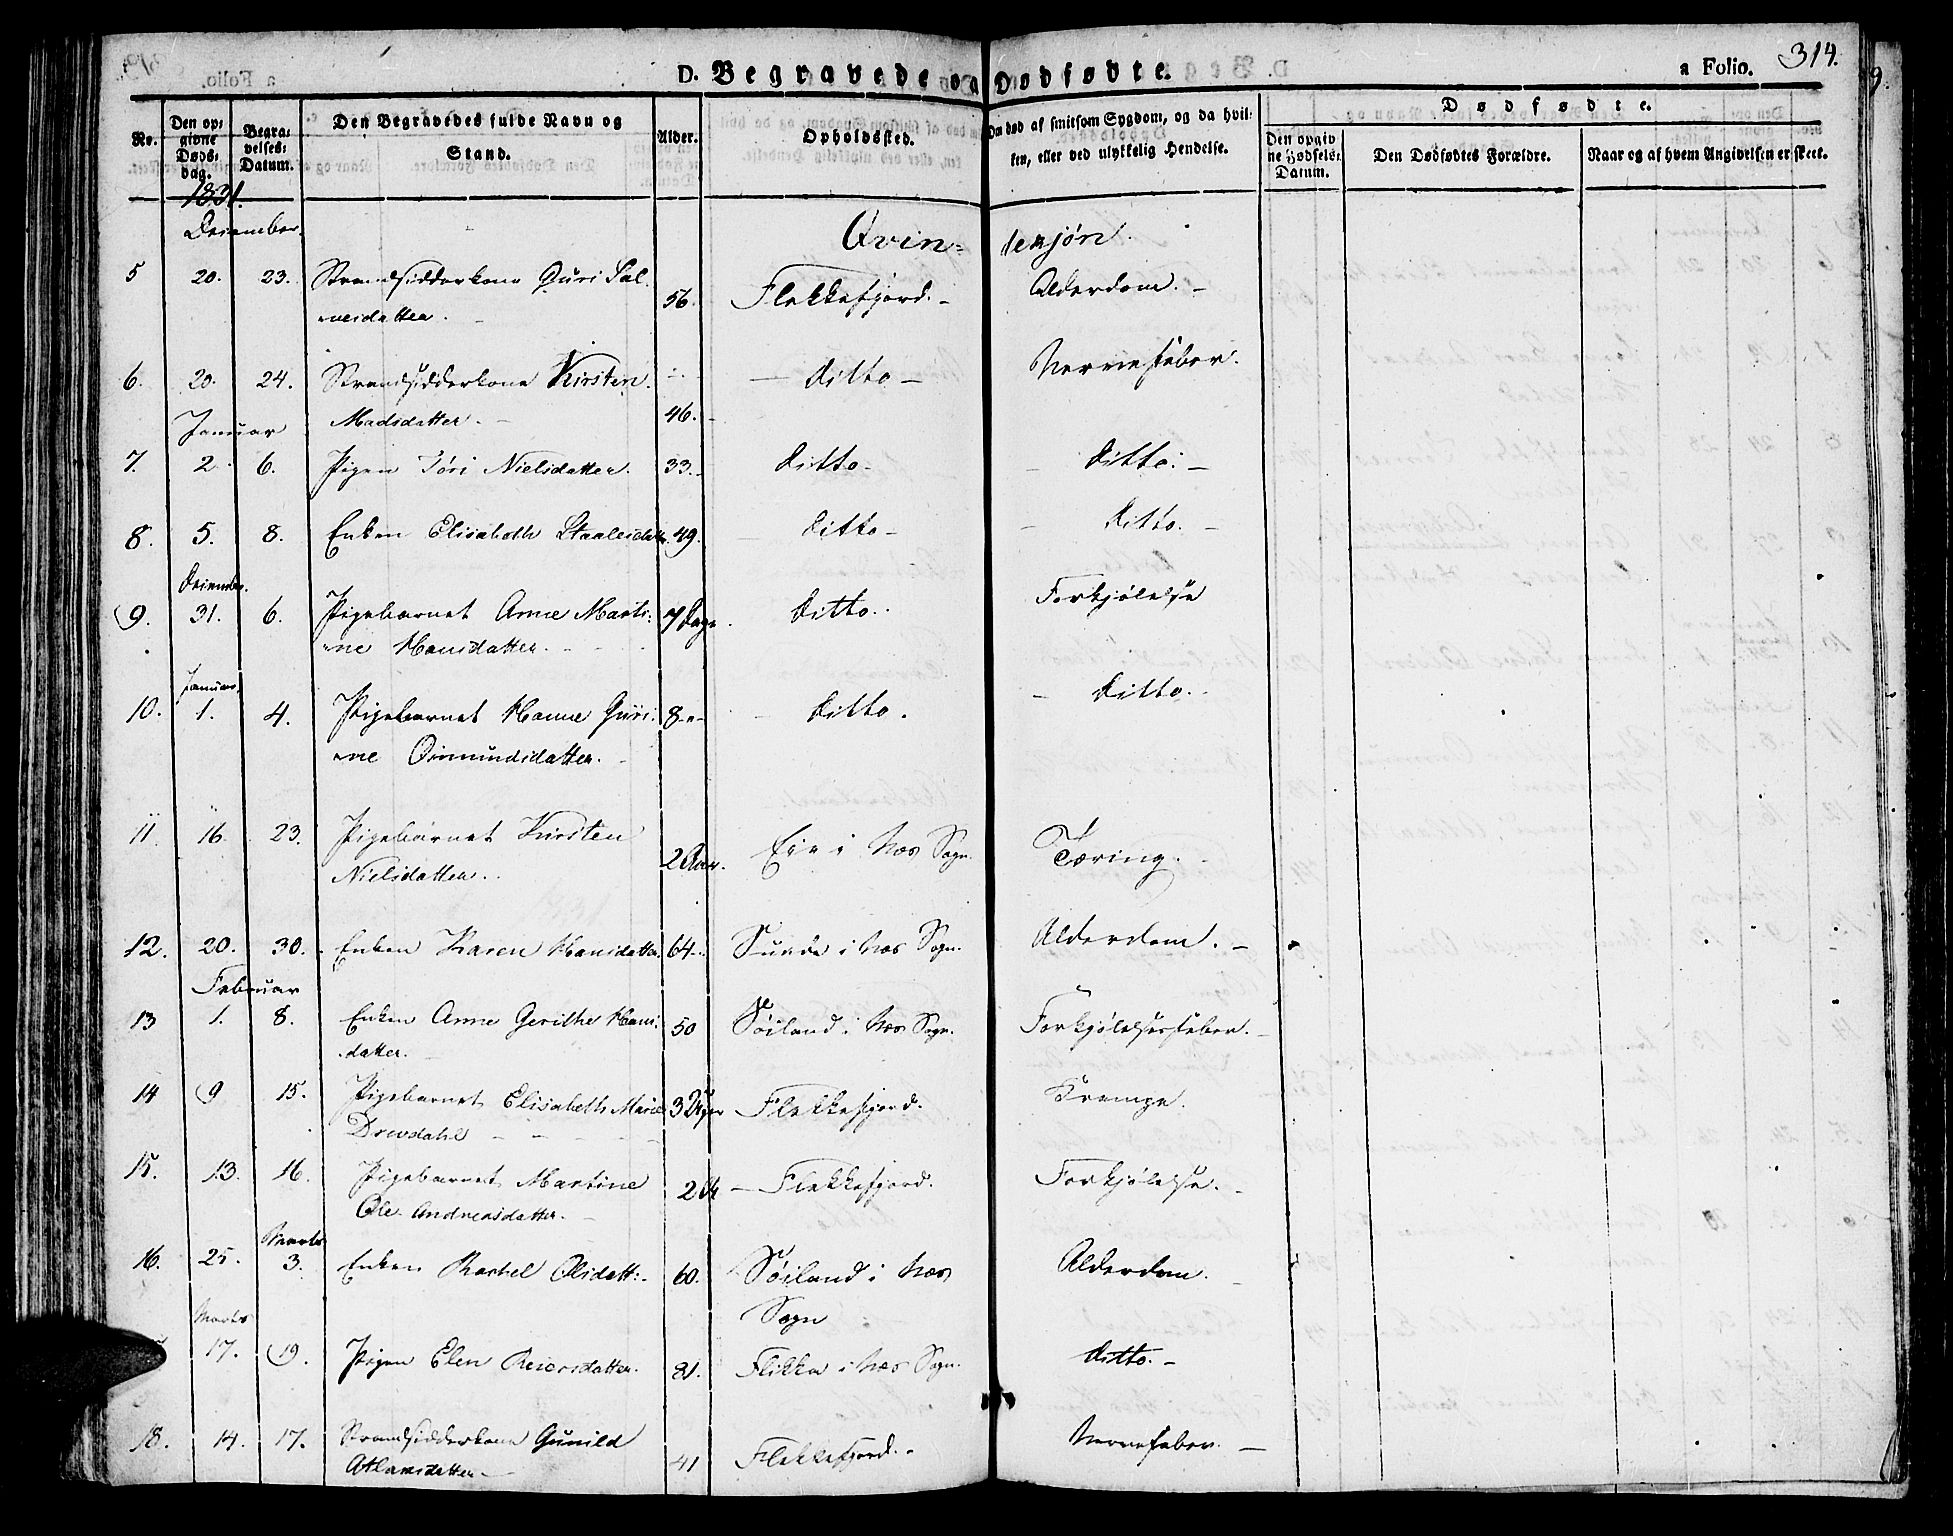 D. Begravede og Dødfødte.
a Folio. 314.
No. | Den opgivne Dødsdag. | Begravelses-Datum. | Den Begravedes fulde Navn og Stand. | Alder. | Opholdsted. | Om død af smitsom Sygdom, og da hvilken, eller ved ulykkelig Hendelse. | Dødfødte. | Den opgivne Fødsels-Datum. | Den Dødfødtes Forældre. | Naar og af hvem Angivelsen er skeet.
1831.
December. Qvin= dekjøn.
5 20. 23. Strandsidderkone Guri Sal-
nesdatter. 56. Flekkefjord. Alderdom.
6. 20. 24. Strandsidderkone Kirsten
Madsdatter. 46. ditto Nervefeber.
Januar
7. 2. 6. Pigen Tóri Nielsdatter. 33. ditto ditto.
8. 5. 8. Enken Elisabeth Staalesdatter 49. ditto ditto.
December.
9. 31. 6. Pigebarnet Anne Marti-
ne Hansdatter. 7 Dage ditto. Forkjølelse
Januar.
10. 1. 4. Pigebarnet Hanne Guri-
ne Osmundsdatter. 8 -"- ditto. ditto.
11 16. 23. Pigebarnet Kirsten
Nielsdatter. 2 Aar. Eie i Næs Sogn. Tæring.
12. 20. 30. Enken Karen Hansdatter 64 Sunde i Næs Sogn. Alderdom.
Februar
13 1. 8. Enken Anne Gerithe Hans-
datter. 50 Søiland i Næs Sogn. Forkjølelsesfeber.
14 9 15. Pigebarnet Elisabeth Marie
Drewdahl 3 Uger Flekkefjord. Krampe.
15. 13. 16. Pigebarnet Martine
Ole Andreasdatter. 2 Flekkefjord. Forkjølelse.
Marts
16. 25. 3. Enken Rachel Olsdatt: 60. Søiland i Næs
Sogn Alderdom.
Marts
17. 19. Pigen Elen Reiersdatter. 81. Flikka i Næs Sogn. ditto.
18. 14. 17. Strandsidderkone Gunild
Atlaksdatter 41 Flekkefjord. Nervefeber.